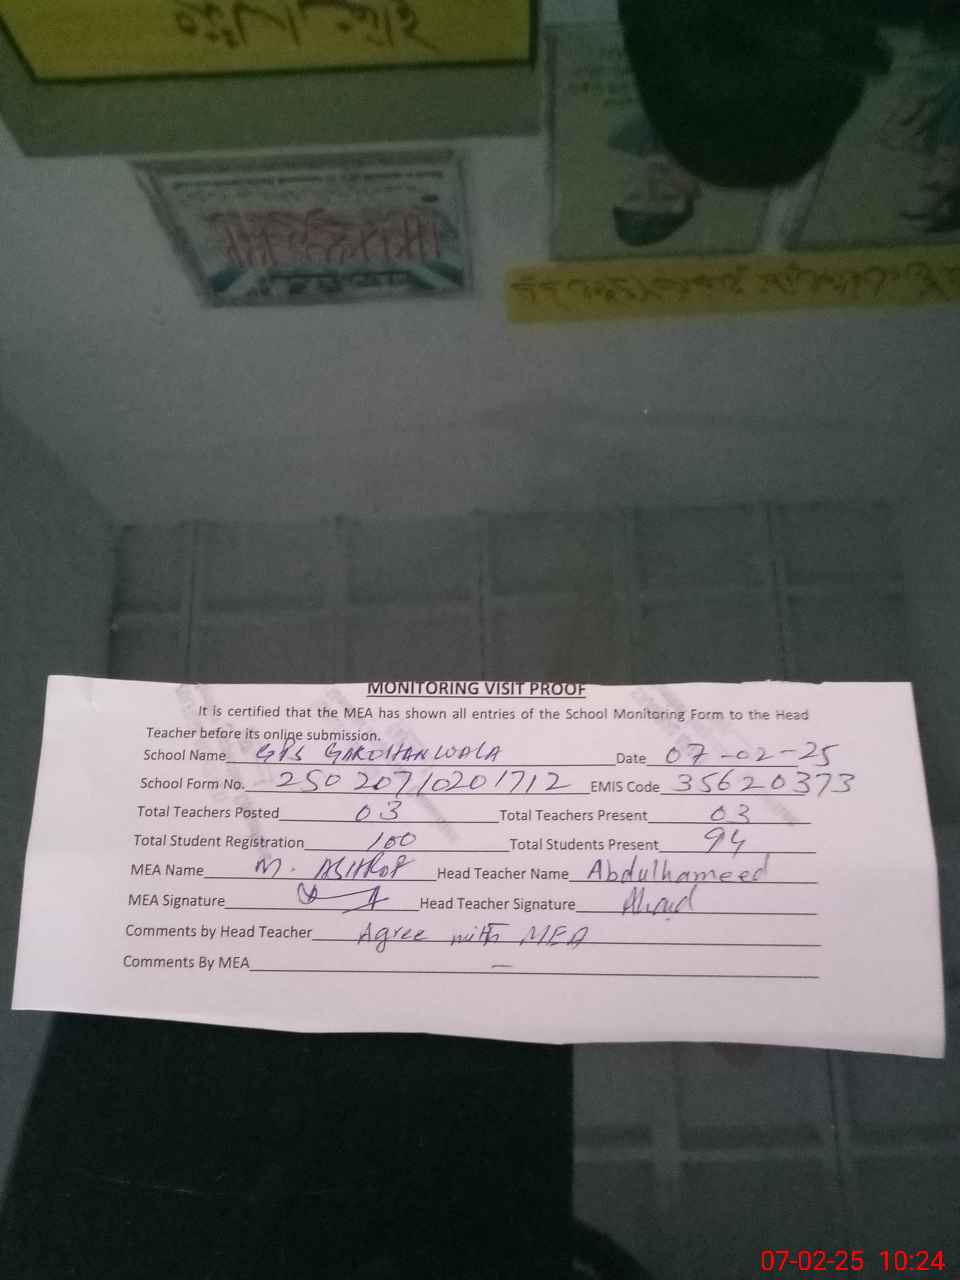 MONITORING VISIT PROOF
It is certified that the MEA has shown all entries of the School Monitoring Form to the Head
Teacher before its online submission.
School Name GPS GAROHANWALA Date 07-02-25
School Form No. 25020710201712 EMIS Code 35620373
Total Teachers Posted 03 Total Teachers Present 03
Total Student Registration 100 Total Students Present 94
MEA Name M. ASHRaf Head Teacher Name Abdulhameed
MEA Signature Head Teacher Signature
Comments by Head Teacher Agree with MEA
Comments By MEA —
07-02-25 10:24